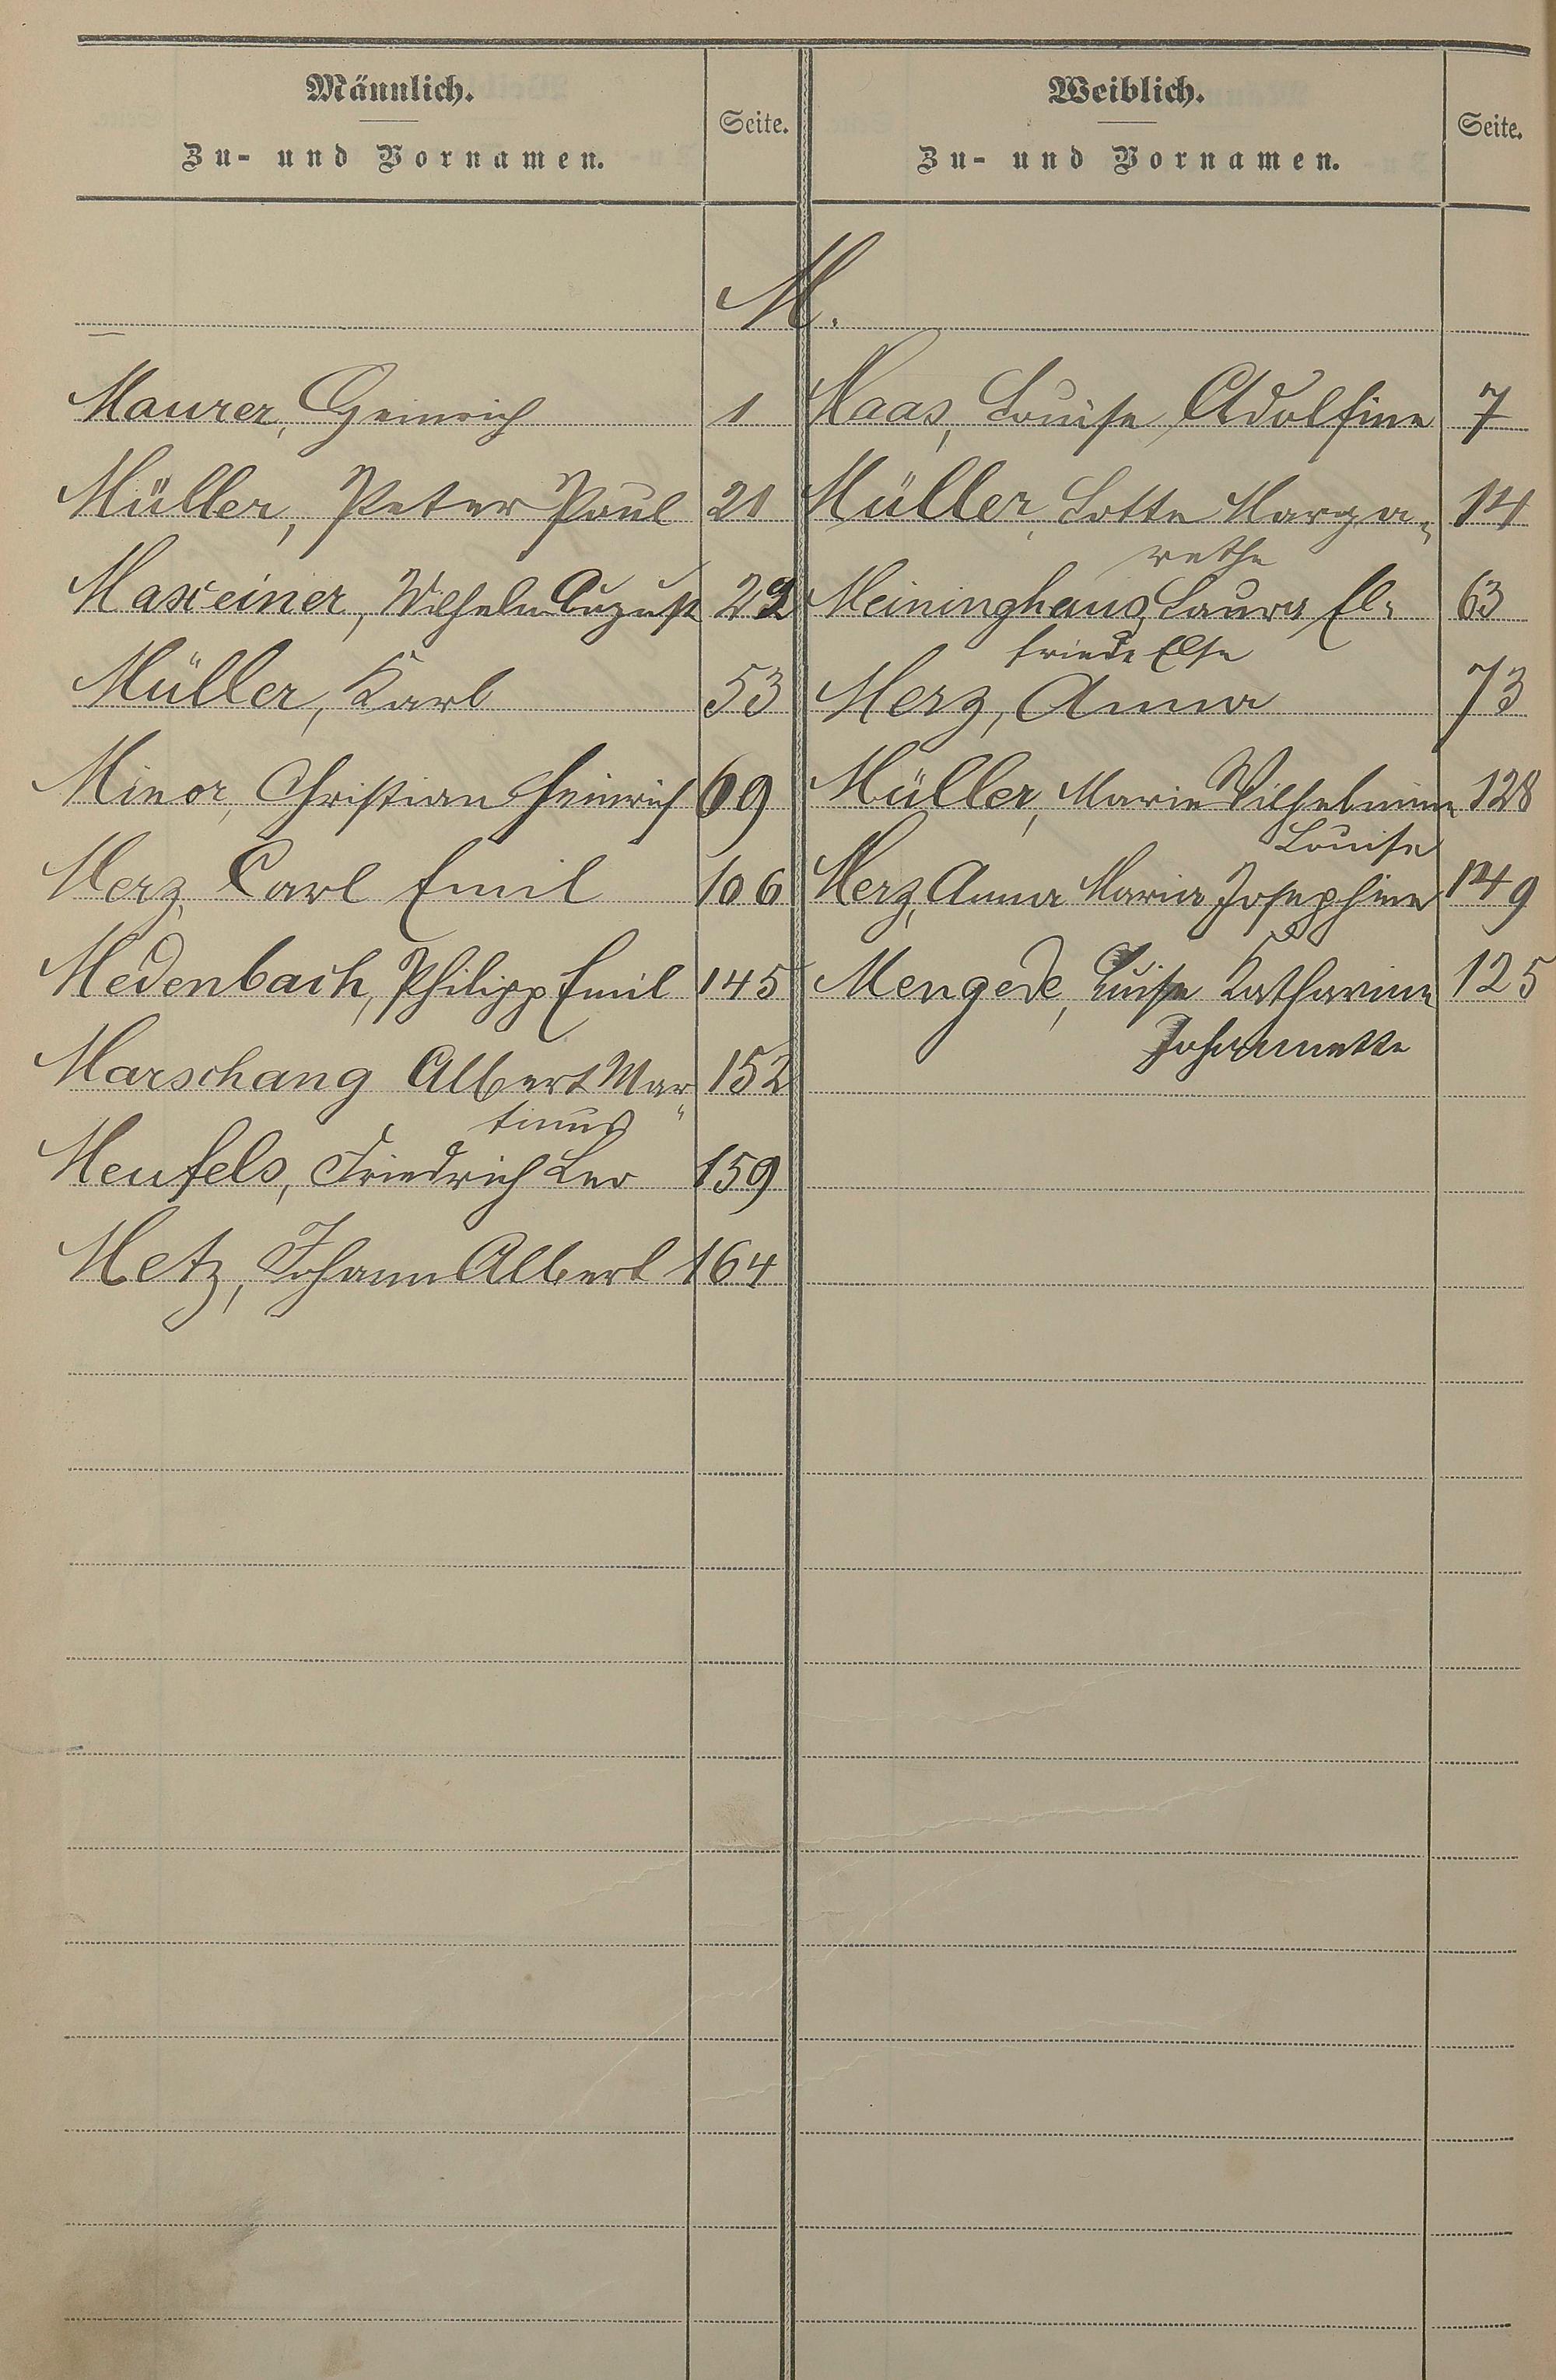 Männlich.
Zu- und Vornamen.
Seite.
Weiblich.
Zu- und Vornamen.
Seite.
M.
Maurer, Heinrich 1
Müller, Peter Paul 21
Maxeiner, Wilhelm August 22
Müller, Karl 53
Minor, Christian Heinrich 69
Merz, Carl Emil 106
Medenbach, Philipp Emil 145
Marschang Albert Mar„
tinus 152
Meufels, Friedrich Leo 159
Metz, Johann Albert 164
Maas, Louise Adolfine 7
Müller, Lotte Marga„ 14
rethe
Meininghaus, Laura, El- 63
friede Else
Merz, Anna 73
Müller, Marie Wilhelmine 128
Louise
Merz, Anna Maria Josephine 149
Mengede, Luise Katharine 125
Johannette